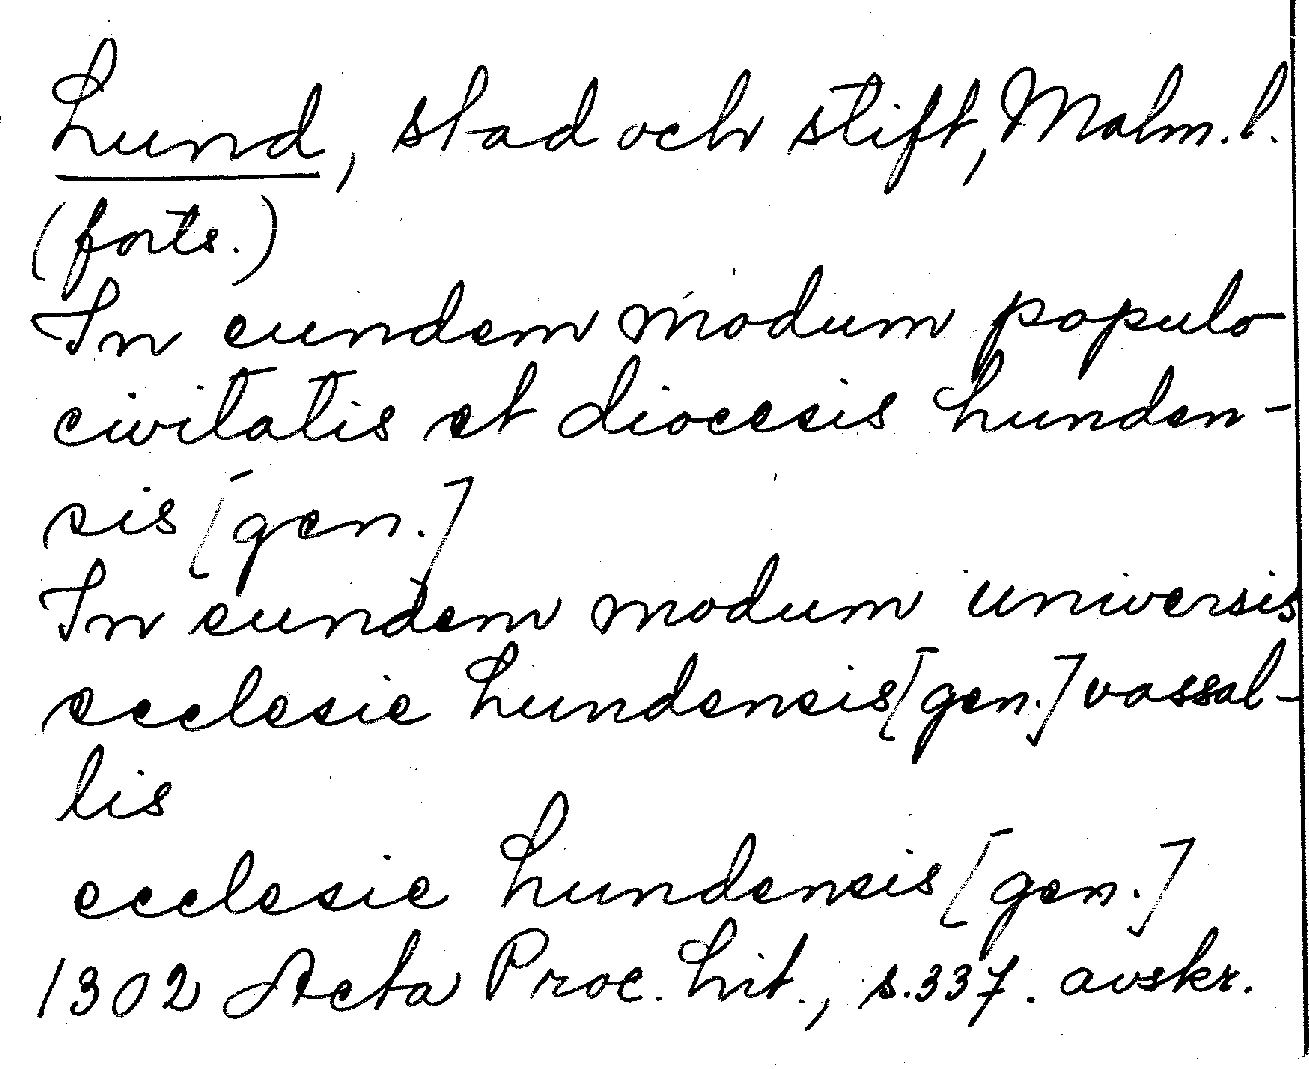 Lund, stad och stift, Malm. l.
(forts.)
In eundem modum populo
civitatis et diocesis Lunden-
sis [gen.]
In eundem modum universis
ecclesie Lundensis [gen.] vassal-
lis
ecclesie Lundensis [gen.]
1302 Acta Proc. Lit., s. 337. avskr.